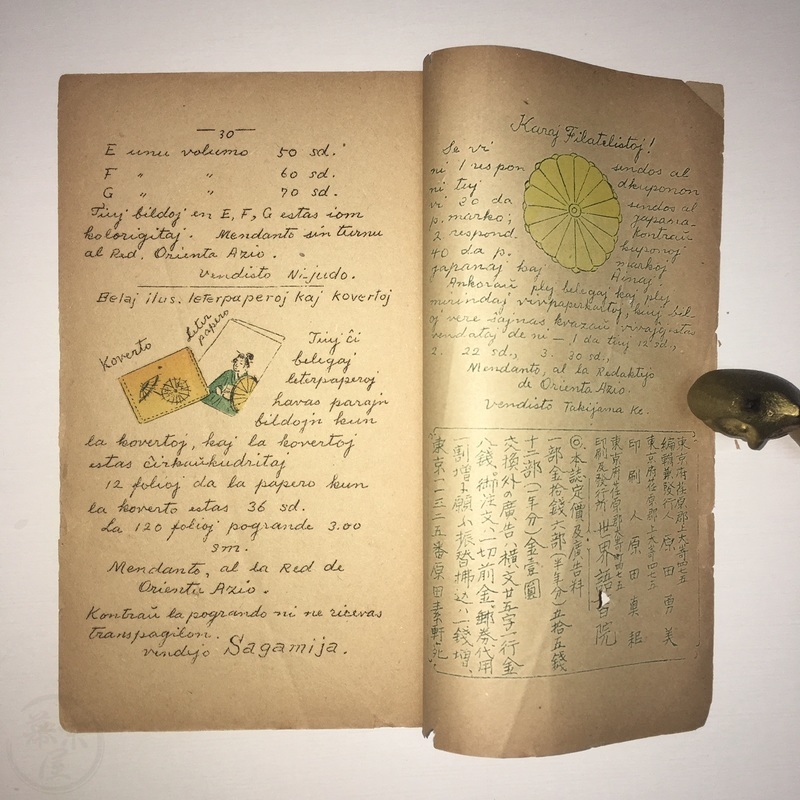 30
E unu volumo 50 sd.
F 〃 〃 60 sd.
G 〃 〃 70 sd.
Tiuj bildoj en E, F, G estas iom
kolorigitaj. Mendanto sin turnu
al Red. Orienta Azio.
Vendisto Ni-judo.
Belaj ilus. leterpaperoj kaj kovertoj
Koverto
leter
papero
Tiuj ĉi
belegaj
leterpaperoj
havas parajn
bildojn kun
la kovertoj, kaj la kovertoj
estas ĉirkaŭkudritaj
12 folioj da la papero kun
la koverto estas 36 sd.
La 120 folioj pogrande 3.00
sm.
Mendanto, al la Red de
Orienta Azio.
Kontraŭ la pogrando ni ne ricevas
transpagilon.
vendejo Sagamija.
Karaj Filatelistoj!
Se vi sendos al
ni 1 respondkuponon
ni tuj sendos al
vi 20 da japana-
p. marko; kontraŭ
2 respond. kuponoj
40 da p. markoj
japanaj kaj Ĥinaj.
Ankoraŭ plej belegaj kaj plej
mirindaj
oj vere ŝajnas kvazaŭ vivaj, estas
vendataj de ni — 1 da tiuj 12 sd.,
2. 22 sd., 3. 30 sd.,
Mendanto, al la Redaktijo
de Orienta Azio.
Vendisto Takijama Ke.
東京府荏原郡上大﨑四七五
編輯兼發行人 原田勇美
東京府荏原郡上大﨑四七五
印刷人 原田
東京府荏原郡大﨑町四七五
印刷及發行所 世界語書院
◎本誌定價及廣告料
一部金拾錢六部(半年分)五拾五錢
十二部(一年分)金壹圓
交換外の廣告ハ横文廿五字一行金
八錢、御注文ハ一切前金、郵券代用
一割増ト願ハ振替拂込ハ一錢増、
東京一一三一五番原田素軒宛